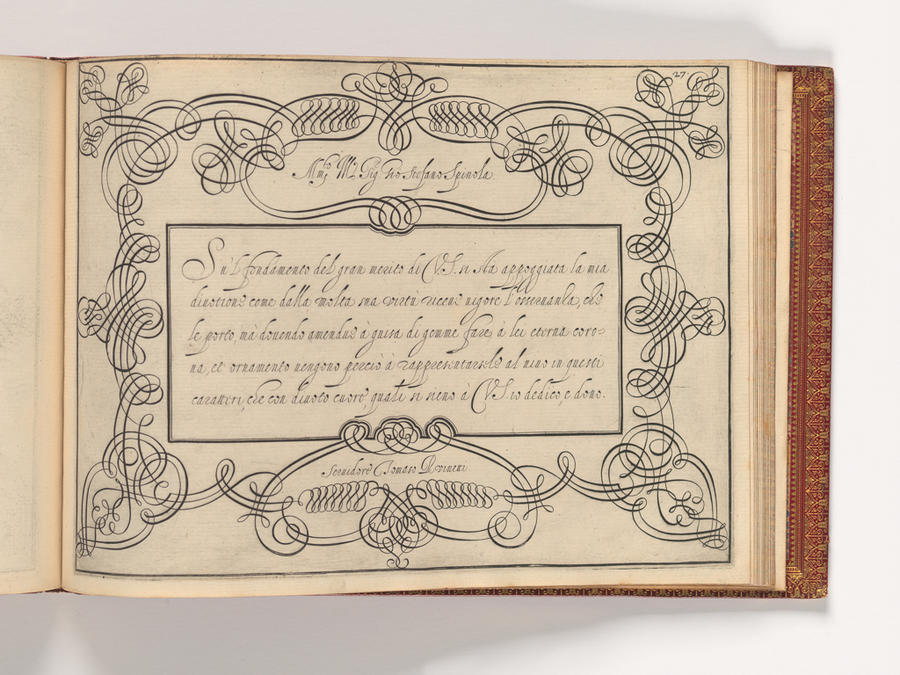 27
M.to M.co Sig. Gio Stefano Spinola
Su'l fondamento del gran merito di V.S. si stà appoggiata la mia
divotione come dalla molta sua virtù riceue uigore l'osseruanza, che
le porto, mà douendo amendue à guisa di gemme fare à lei eterna coro=
na, et ornamento uengono perciò à rappresentarsele al uiuo in questi
caratteri, che con diuoto cuore, quali si sieno à V.S. io dedico, e dono.
Seruidore Tomaso Ruinetti